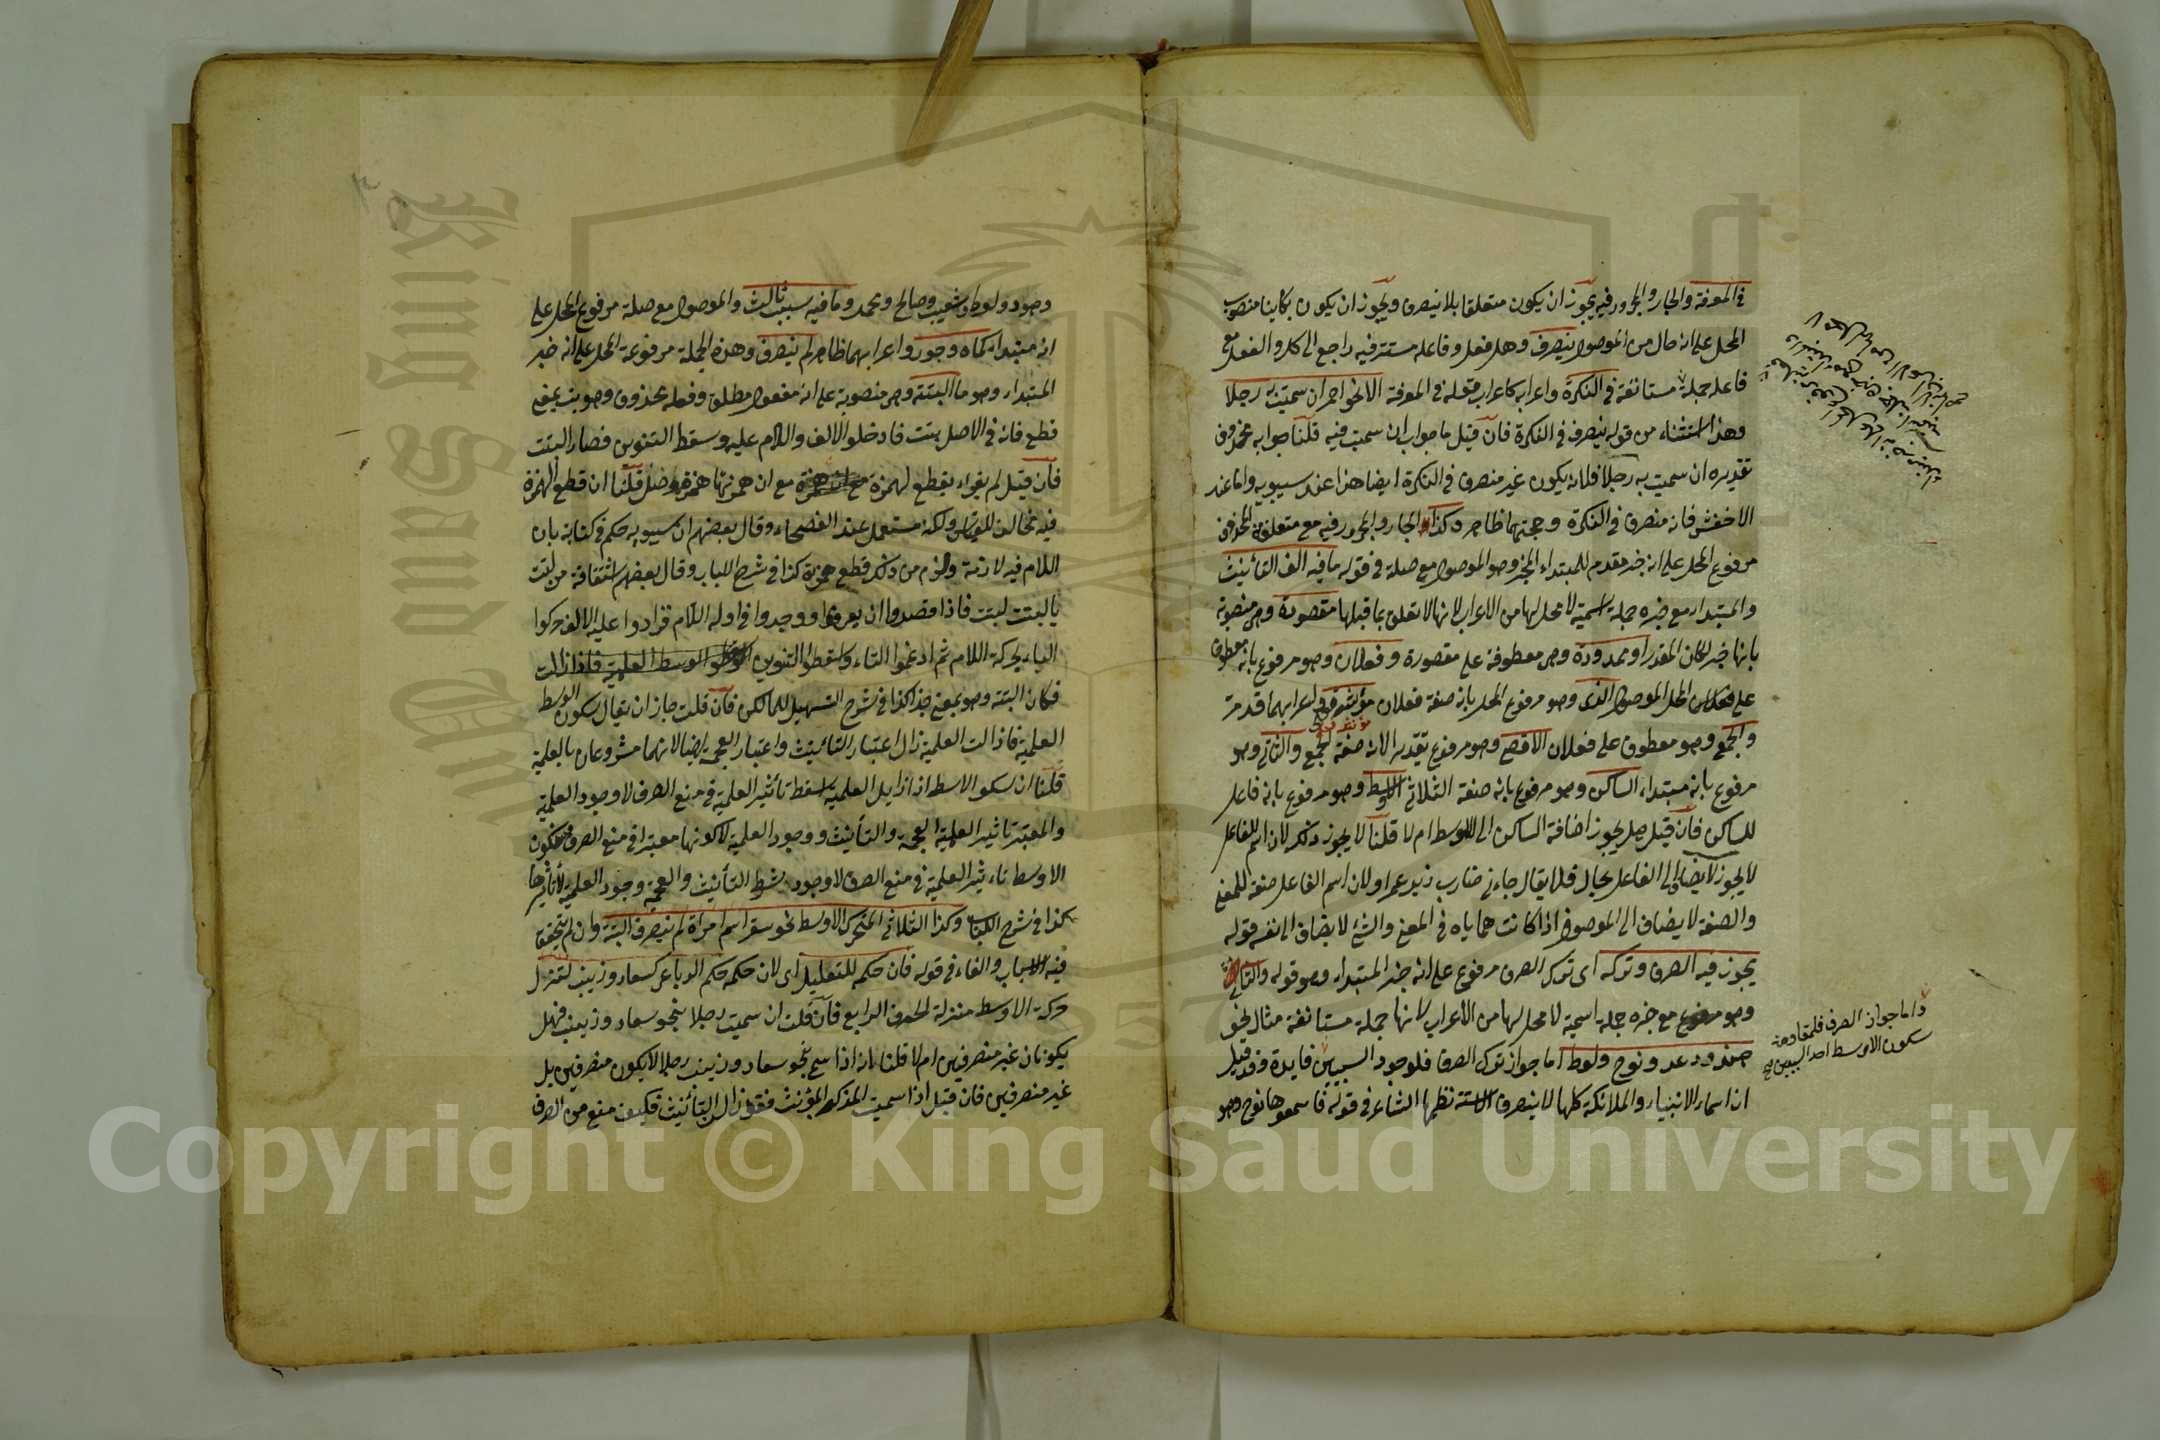 في المعرفة والجار والمجرور فيه يجوز ان يكون متعلقا بلا ينصرف ويجوز ان يكون بكاينا منصوب
المحل على انه حال من الموصول ينصرف وهل فعل وفاعله مستتر فيه راجع الى كل والفعل مع
فاعله جملة مستانفة في النكرة واعرابه كاعراب مثله في المعرفة الا نحو احمر ان سميت به رجلا
وهذا استثناء من قوله ينصرف في النكرة فان قيل ما جواب ان سميت فيه قلنا جوابه محذوف
تقديره ان سميت به رجلا فلانه يكون غير منصرف في النكرة ايضا هذا عند سيبويه واما عند
الاخفش فانه منصرف في النكرة وحجتهما ظاهر وكذا الجار والمجرور فيه مع متعلقه المحذوف
مرفوع المحل على انه خبر مقدم للمبتداء المؤخر وهو الموصول مع صلة في قوله ما فيه الف التانيث
والمبتداء مع خبره جملة اسمية لا محل لها من الاعراب لانها لا تعلق بما قبلها مقصورة وهي منصوبة
بانها خبر لكان المقدر او ممدودة وهي معطوفة على مقصورة وفعلان وهو مرفوع بانه معطوف
على المحل الموصول الذى وهو مرفوع المحل بانه صفة فعلان واعرابهما قد مر
والجمع وهو معطوف على فعلان الاقصى وهو مرفوع تقديرا لانه صفة لجمع والثلاثي وهو
مرفوع بانه مبتداء الساكن وهو مرفوع بانه صفة الثلاثي الاوسط وهو مرفوع بانه فاعل
للساكن فان قيل هل يجوز اضافة الساكن الى الاوسط ام لا قلنا لا يجوز ذلك لان اسم الفاعل
لا يجوز لايضاف الى الفاعل بحال فلا يقال جاءني ضارب زيد عمرا ولان اسم الفاعل صفة للمعنى
والصفة لا يضاف الى الموصوف اذا كانت هي اياه في المعنى والشئ لا يضاف الى نفسه قوله
يجوز فيه الصرف وتركه اى ترك الصرف مرفوع على انه خبر المبتداء وهو قوله والثلاثي
وهو مرفوع مع خبره جملة اسمية لا محل لها من الاعراب لانها جملة مستانفة مثال نحو
هند ودعد ونوح ولوط اما جواز ترك الصرف فلوجود السببين فايدة وقد قيل
ان اسماء الانبياء والملائكة كلها لا ينصرف الا ستة نظمها الشاعر في قوله فاسمعوها نوح وهو
واما جواز الصرف فلمقاومة
سكون الاوسط احد السببين صح
وهود ولوط وشعيب وصالح ومحمد وما فيه سبب ثالث والموصول مع صلة مرفوع المحل على
انه مبتداء كماه وجور واعرابهما ظاهر لم ينصرف وهذه الجملة مرفوعة المحل على انه خبر
المبتداء وهو ما البتة وهي منصوبة على انه مفعول مطلق وفعله محذوف وهو بت بمعنى
قطع فانه في الاصل بتت فادخلوا الالف واللام عليه وسقط التنوين فصار البتت
فان قيل لم يقراء بقطع الهمزة مع ان همزتها همزة وصل قلنا ان قطع الهمزة
فيه مخالف للقياس ولكنه مستعمل عند الفصحاء وقال بعضهم ان سيبويه حكم في كتابه بان
اللام فيه لازمة ولزم من ذلك قطع همزة كذا في شرح اللباب وقال بعضهم اشتقاقة من لبتت
يا لبتت لبتت فاذا قصدوا ان يعرفوا ووجدوا في اوله اللام فزادوا عليه الالف حركوا
الباء بحركة اللام ثم ادغموا التاء واسقطوا التنوين
فكان البتة وهو بمعنى جدا كذا في شرح التسهيل للمالكي فان قلت جاز ان يقال سكون الوسط
العلمية فاذا زالت العلمية زال اعتبار التانيث واعتبار العجمة ايضا لانهما مشروعان بالعلمية
قلنا ان سكون الاوسط اذا زايل العلمية اسقط تأثير العلمية في منع الصرف لا وجود العلمية
والمعتبر تاثير العلمية العجمة والتأنيث ووجود العلمية لا كونها معتبرا في منع الصرف فسكون
الاوسط تأثير العلمية في منع الصرف لا وجود شرط التأنيث والعجمة وجود العلمية لا تأثيرها
كذا في شرح الكتاب وكذا الثلاثي المتحرك الاوسط نحو سقر اسم امراة لم ينصرف البتة وان لم يتحقق
فيه الاسباب والفاء في قوله فان حكمه للتعليل اى لان حكمه حكم الرباعي كسعاد وزينب لتنزل
حركة الاوسط منزلة الحرف الرابع فان قلت ان سميت رجلا بنحو سعاد وزينب فهل
يكونان غير منصرفين ام لا قلنا اذا سمي بنحو سعاد وزينب رجلا لا يكون منصرفين بل
غير منصرفين فان قيل اذا سميت المذكر المؤنث فقد زال التأنيث فكيف منع من الصرف